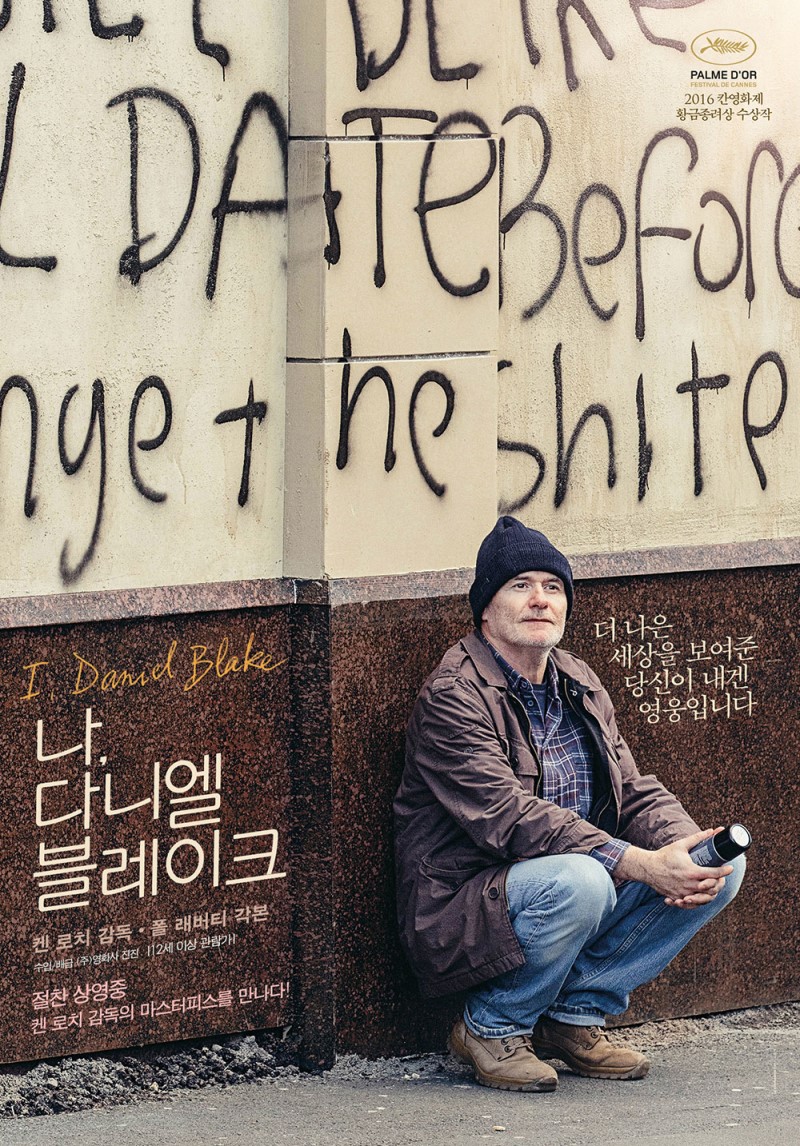 PALME D'OR
FESTIVAL DE CANNES
2016 칸영화제
황금종려상 수상작
L DATE Before
nge the shite
더 나은
세상을 보여준
당신이 내겐
영웅입니다
I, Daniel Blake
나,
다니엘
블레이크
켄 로치 감독 • 폴 래버티 각본
수입/배급 (주)영화사 진진 | 12세 이상 관람가
절찬 상영중
켄 로치 감독의 마스터피스를 만나다!